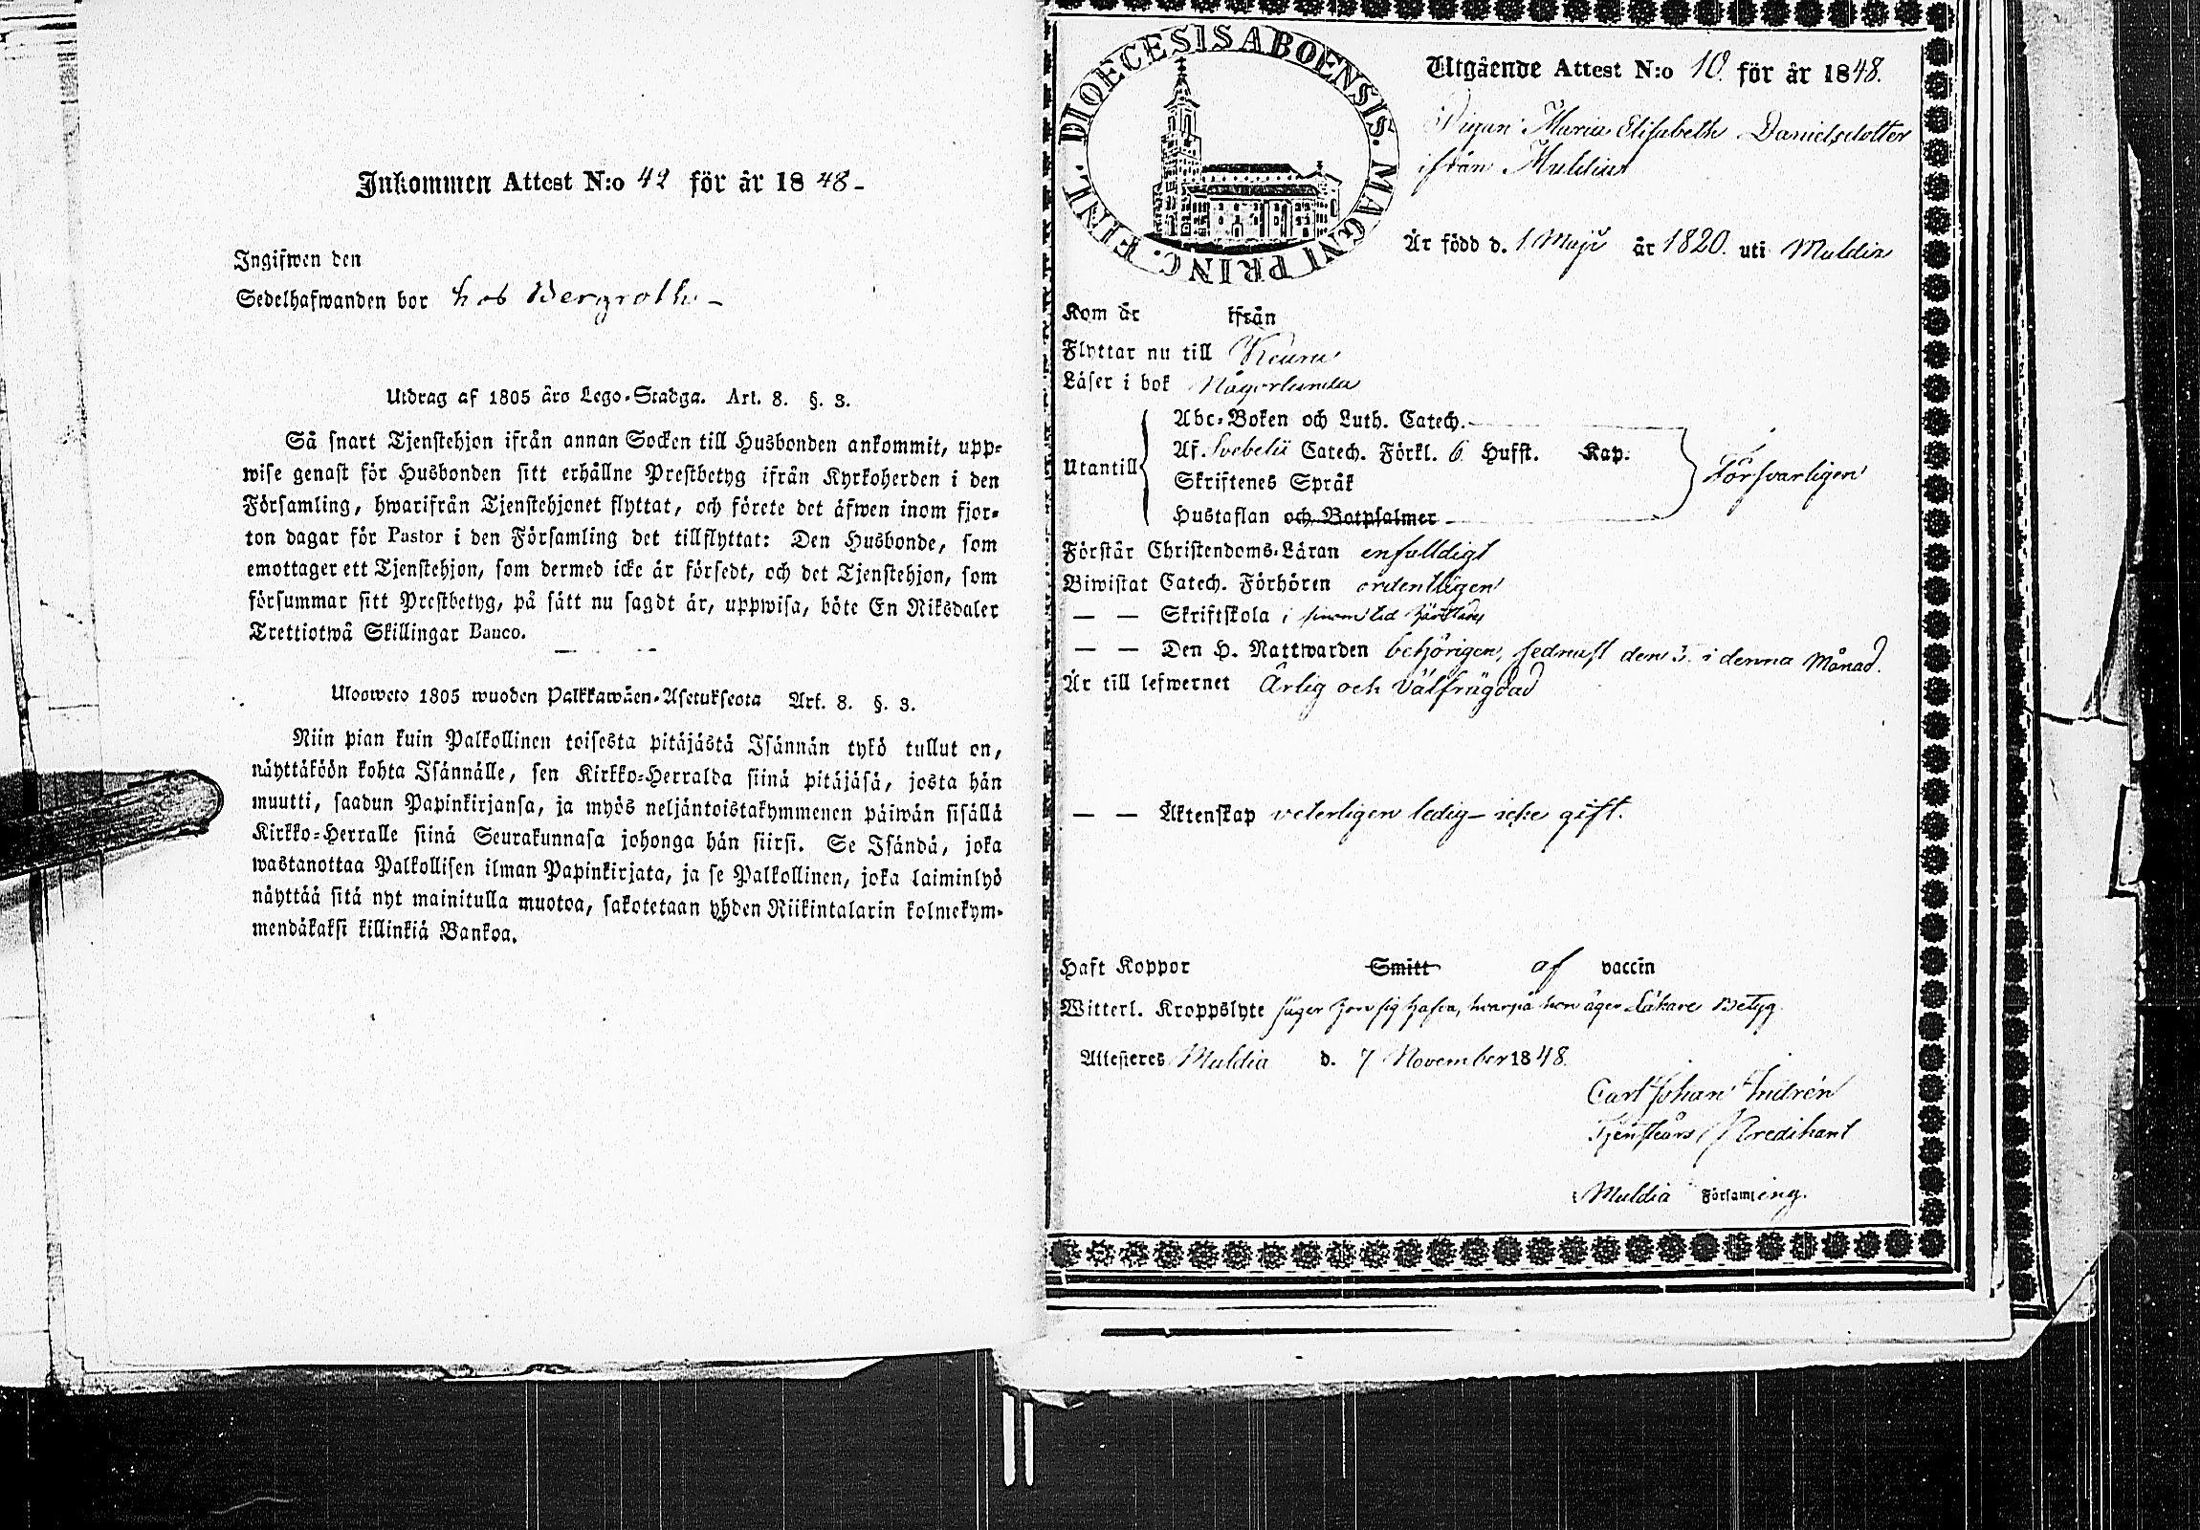 Inkommen Attest N:o 42 för år 1848-
Ingifwen den
Sedelhafwanden bor hos Bergroth-
Utdrag af 1805 års Lego-Stadga. Art. 8. §. 3.
Så snart Tjenstehjon ifrån annan Socken till Husbonden ankommit, upp-
wise genast för Husbonden sitt erhållne Prestbetyg ifrån Kyrkoherden i den
Församling, hwarifrån Tjenstehjonet flyttat, och förete det äfwen inom fjor-
ton dagar för Pastor i den Församling det tillflyttat: Den Husbonde, som
emottager ett Tjenstehjon, som dermed icke är försedt, och det Tjenstehjon, som
försummar sitt Prestbetyg, på sätt nu sagdt är, uppwisa, böte En Riksdaler
Trettiotwå Skillingar Banco.
Ulosweto 1805 wuoden Palkkawäen-Asetuksesta Art. 8. §. 3.
Niin pian kuin Palkollinen toisesta pitäjästä Isännän tykö tullut on,
näyttäköön kohta Isännälle, sen Kirkko-Herralda siinä pitäjäsä, josta hän
muutti, saadun Papinkirjansa, ja myös neljäntoistakymmenen päiwän sisällä
Kirkko-Herralle siinä Seurakunnasa johonga hän siirsi. Se Isändä, joka
wastanottaa Palkollisen ilman Papinkirjata, ja se Palkollinen, joka laiminlyö
näyttää sitä nyt mainitulla muotoa, sakotetaan yhden Riikintalarin kolmekym-
mendäkaksi killinkiä Bankoa.
DIOECESIS ABOENSIS. MAGNI PRINC. FINL.
Utgående Attest N:o 10. för år 1848.
Pigan Maria Elisabeth Danielsdotter
ifrån Muldia
Är född d. 1 Maji år 1820. uti Muldia
Kom år ifrån
Flyttar nu till Keuru
Läser i bok Någorlunda
Abc-Boken och Luth. Catech.
Utantill Af Svebelii Catech. Förkl. 6 Hufst. Kap. Försvarligen
Skriftenes Språk
Hustaflan och Botpsalmer
Förstår Christendoms-Läran enfalldigt
Biwistat Catech. Förhören ordentligen
— — Skriftskola i sinom tid
— — Den H. Nattwarden behörigen, sednast den 3. i denna Månad.
Är till lefwernet Ärlig och välfrägdad
— — Äktenskap veterligen ledig - icke gift.
Haft Koppor Smitt af vaccin
Witterl. Kroppslyte säger hon sig hafva, hvarpå hon äger Läkare Betyg
Attesteres Muldia d. 7 November 1848.
Carl Johan Indrén
Predikant
Muldia Församling.